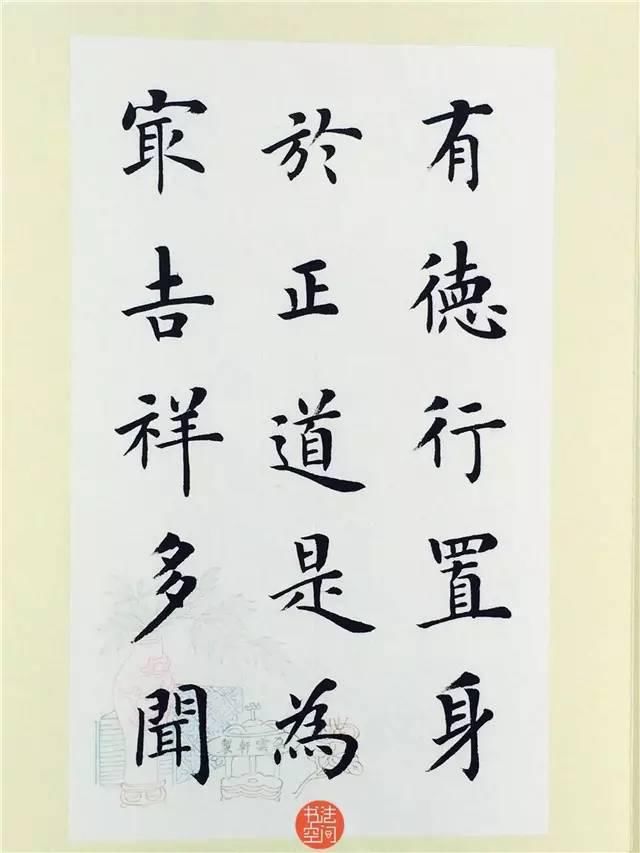 有德行置身
於正道是為
冣吉祥多聞
雲軒製
书法空间